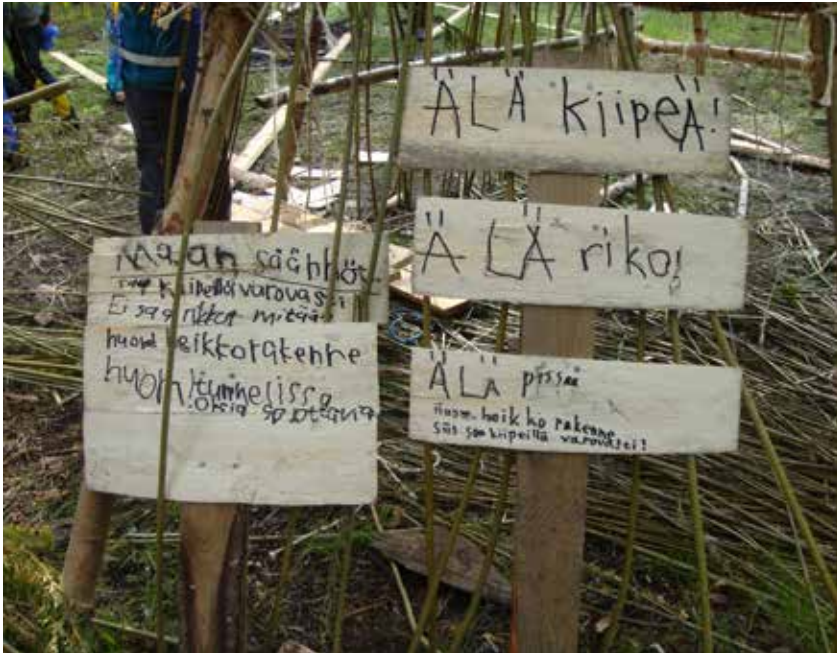 Majan säännöt
saa kiipeillä varovasti
Ei saa rikkoa mitään
huom heikkorakenne
huom! tunnelissa
ÄLÄ kiipeÄ!
ÄLÄ riko!
ÄLÄ pissaa
Huom. heikko rakenne
siis saa kiipeillä varovasti!